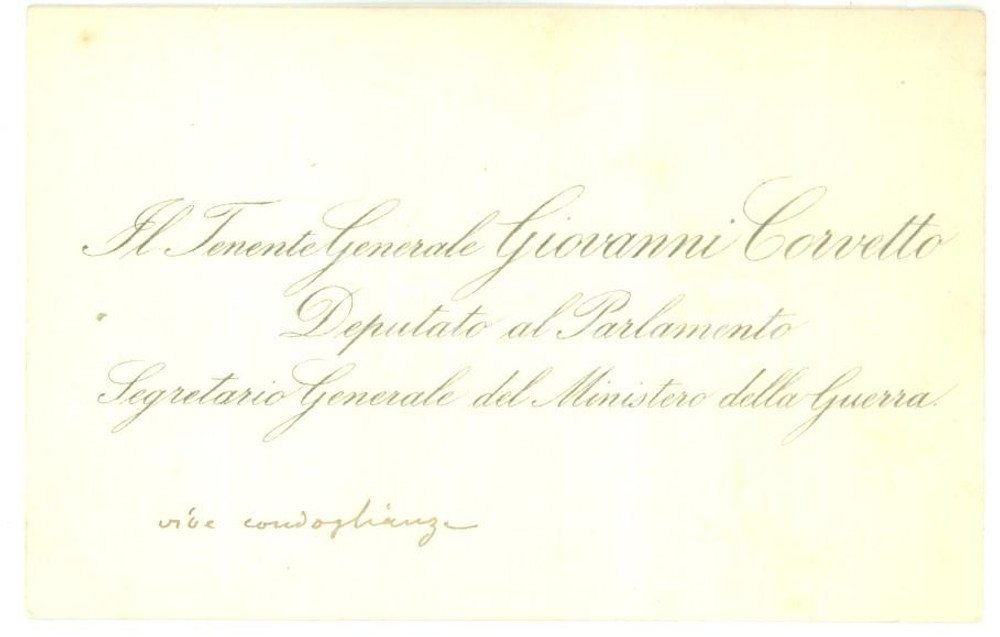 Il Tenente Generale Giovanni Corvetto
Deputato al Parlamento
Segretario Generale del Ministero della Guerra.
vive condoglianze